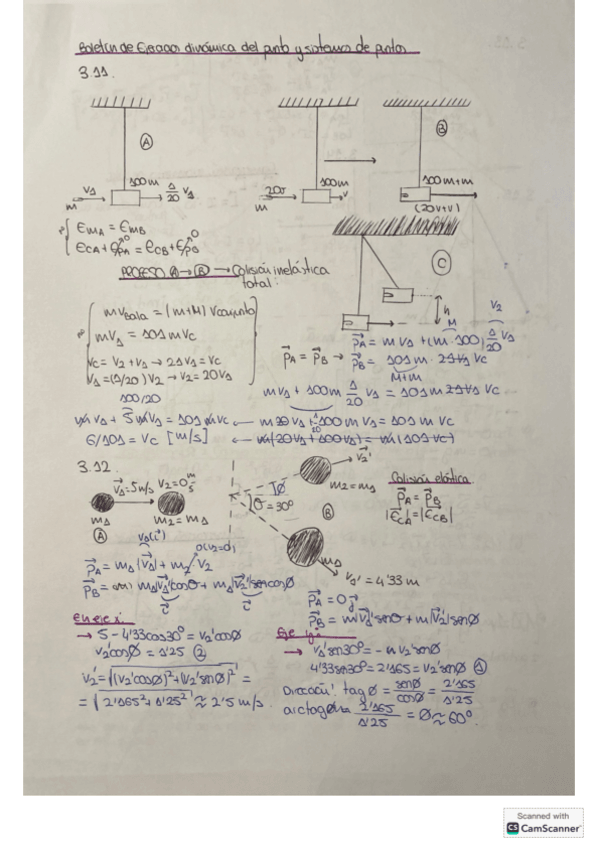 Boletín de Ejercicios dinámica del punto y sistemas de puntos
3.11.
A
100m
v1
m
1/20 v1
200
m
100m
v
B
100m+m
(20v+v)
EmA = EmB
EcA + EpA = EcB + EpB
0
0
PROCESO A → B → Colisión inelástica
total:
C
h
M
m vbala = (m+M) Vconjunto
m v1 = 101 m vc
vc = v2 + v1 → 21 v1 = vc
v1 = (1/20) v2 → v2 = 20 v1
100/20
PA = PB →
v2
PA = m v1 + (m·100) 1/20 v1
PB = 101 m · 21 v1 vc
M+m
m v1 + 100m 1/20 v1 = 101 m 21 v1 vc
m v1 + 5 m v1 = 101 m vc ← m 20 v1 + 100 m v1 = 101 m vc
6/101 = vc [m/s] ← m(20v1 + 100v1) = m(101 vc)
3.12.
v1 = 5 m/s v2 = 0 m/s
m1
m2 = m1
A
θ = 30º
v2'
m2 = m1
B
m1
v1' = 4'33 m
Colisión elástica
PA = PB
|EcA| = |EcB|
PA = m1 |v1| + m2 v2
0(v2=0)
PB = m1 v1' cosθ + m1 |v2'| cosø
PA = 0 j
PB = m v1' senθ + m |v2'| senø
En eje x:
→ 5 - 4'33 cos30º = v2' cosø
v2' cosø = 1'25 2
v2' = √((v2' cosø)² + (v2' senø)²) =
= √(2'165² + 1'25²) ≈ 2'5 m/s.
Eje y:
→ v1' sen30º = - m v2' senø
4'33 sen30º = 2'165 = v2' senø 1
Dirección: tag ø = senø/cosø = 2'165/1'25
arctag ø = 2'165/1'25 = ø ≈ 60º
Scanned with
CS CamScanner